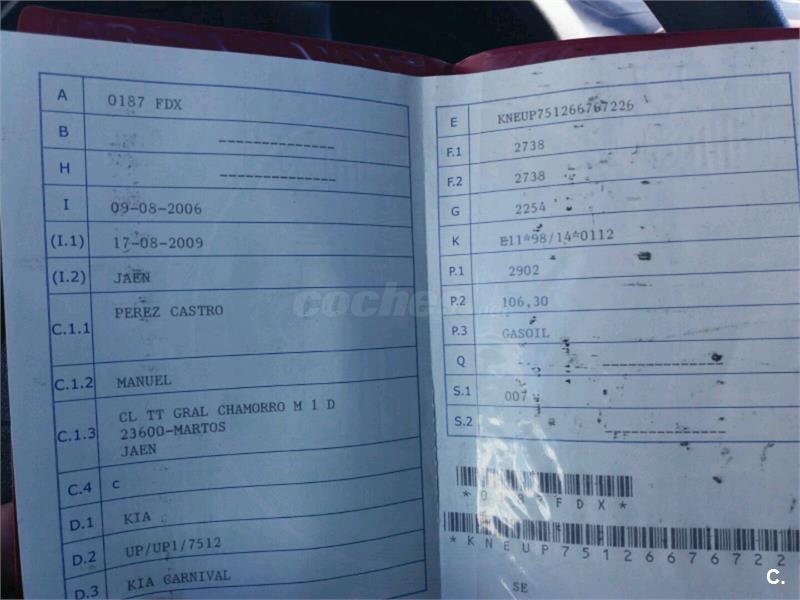 A 0187 FDX
B --------------
H --------------
I 09-08-2006
(I.1) 17-08-2009
(I.2) JAEN
C.1.1 PEREZ CASTRO
C.1.2 MANUEL
C.1.3 CL TT GRAL CHAMORRO M 1 D
23600-MARTOS
JAEN
C.4 c
D.1 KIA
D.2 UP/UP1/7512
D.3 KIA CARNIVAL
E KNEUP751266767226
F.1 2738
F.2 2738
G 2254
K E11*98/14*0112
P.1 2902
P.2 106,30
P.3 GASOIL
Q --------------
S.1 007
S.2 --------------
*0187FDX*
*KNEUP75126676722
SE
coches
C.